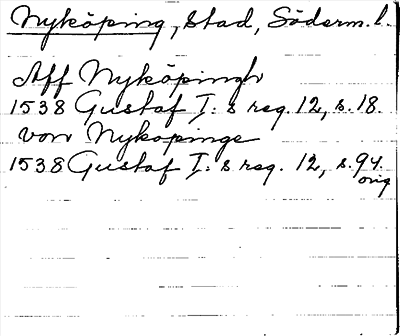 Nyköping, Stad, Söderm. l.
Aff Nyköpingh
1538 Gustaf I:s reg. 12, s. 18.
von Nykopinge
1538 Gustaf I:s reg. 12, s. 94.
orig